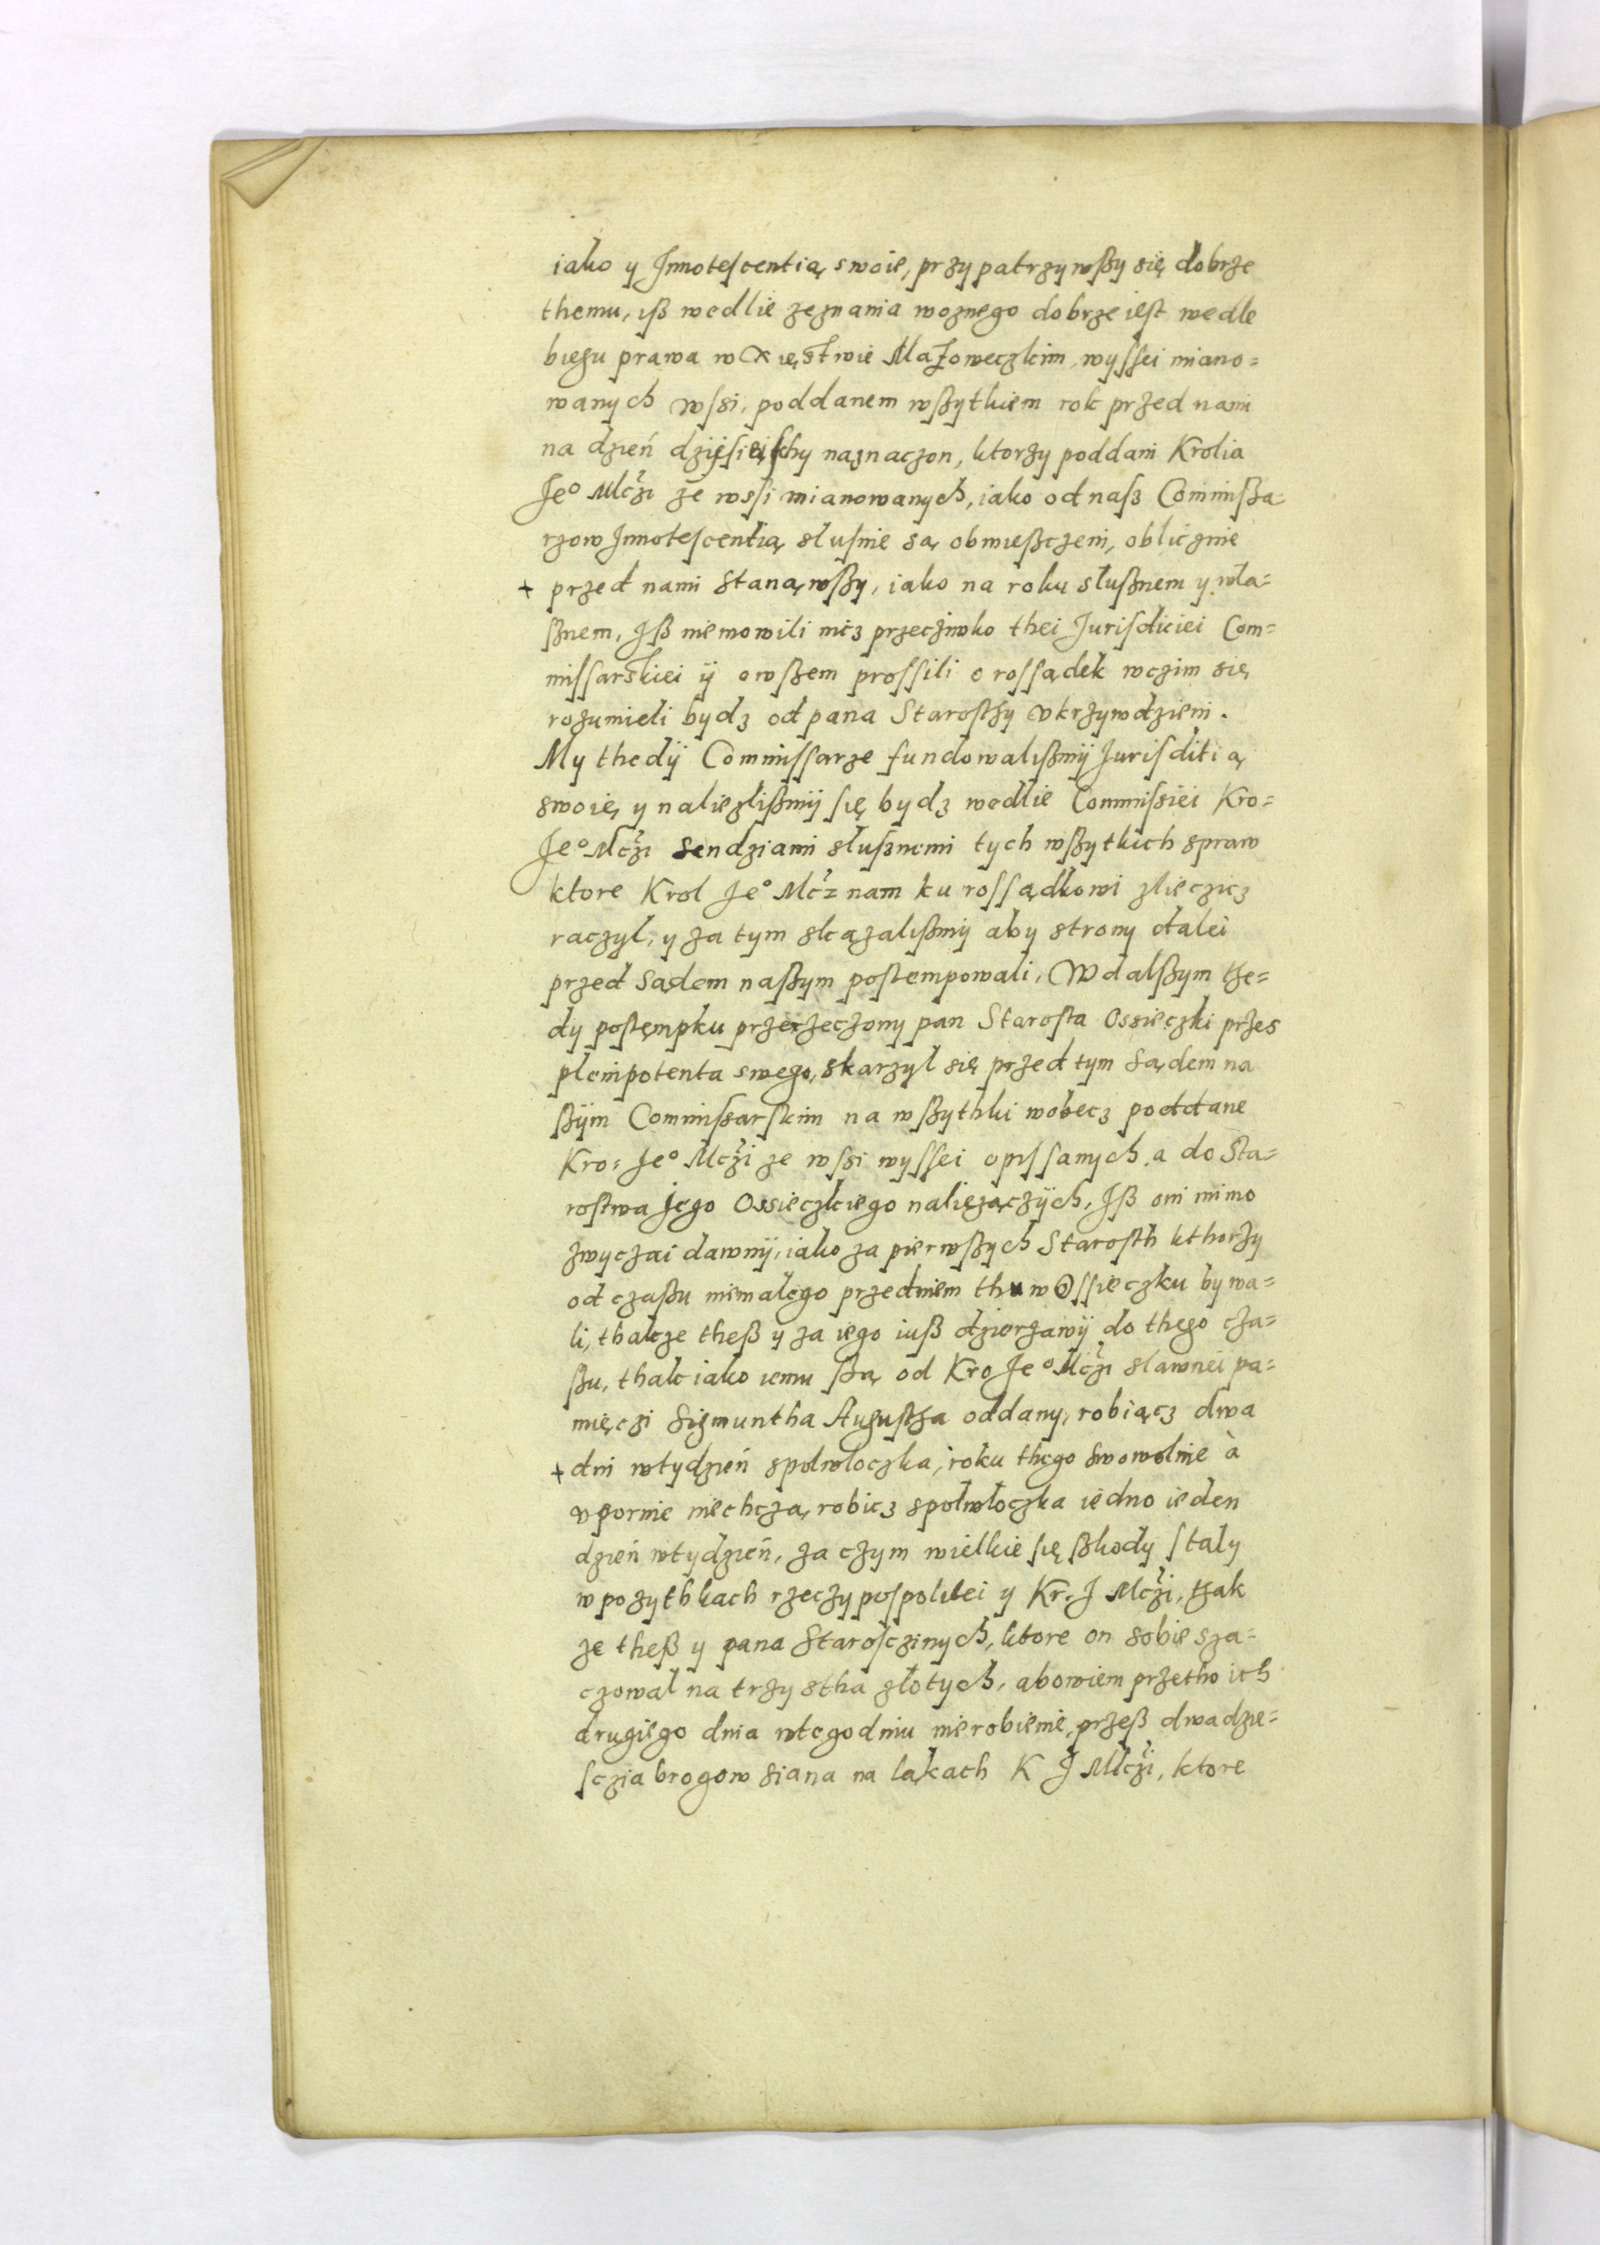 iako y Innotescentią swoię, przypatrzywßy się dobrze
themu, iß wedlie zeznania woznego dobrze iest wedle
biegu prawa w Xięstwie Mazoweczkim, wyssei miano=
wanych wsi, poddanem wßytkiem rok przed nami
na dzień dzisieiszy naznaczon, ktorzy poddani Krolia
Je° Mczi ze wssi mianowanych, iako od nas Commißa=
rzow Innotescentią słusnie są obwießczeni, oblicznie
+ przed nami stanąwßy, iako na roku słußnem y wła=
ßnem, Iß niemowili nicz przeciwko thei Jurisdiciei Com=
missarskiei ÿ owßem prossili o rossądek wczim się
rozumieli bydz od pana Starosthy vkrzywdzieni.
My thedÿ Commissarze fundowalißmÿ Jurisditią
swoię y naliezlißmÿ się bydz wedlie Commissiei Kro=
Je° Mczi Sendziami słusznemi tych wßytkich spraw
ktore Krol Je° Mcz nam ku rossądkowi zlieczicz
raczyl, y za tym skazalißmÿ aby strony dalei
przed Sądem naßym postempowali, W dalßym the=
dy postempku przerzeczony pan Starosta Ossieczki przes
plenipotenta swego, skarzyl się przed tym Sądem na
ßÿm Commissarskim na wßythki wobecz poddane
Kro= Je° Mczi ze wsi wyssei opissanych, a do Sta=
rostwa Jego Ossieczkiego należączÿch, Iß oni mimo
zwyczai dawnÿ, iako za pierwßych Starosth kthorzy
od czaßu niemalego przedniem thu w Ossieczku bywa=
li, thakze theß y za iego iuß dzierzawÿ do thego cza=
ßu, thak iako iemu ßą od Kro Je° Mczi sławnei pa=
mięczi Sigmuntha Augustha oddany, robiącz dwa
+ dni wtydzień społwłoczka, roku thego swowolnie à
vpornie niechczą robicz społwłoczka iedno ieden
dzień wtydzień, za czym wielkie się ßkody staly
w pozythkach rzeczypospolitei y Kr. J Mczi, thak
ze theß y pana Starosczinych, ktore on sobie sza=
czowal na trzy stha złotych, abowiem przetho ich
drugiego dnia wtegodniu nierobienie, przeß dwadzie=
sczia brogow siana na ląkach K J Mczi, ktore